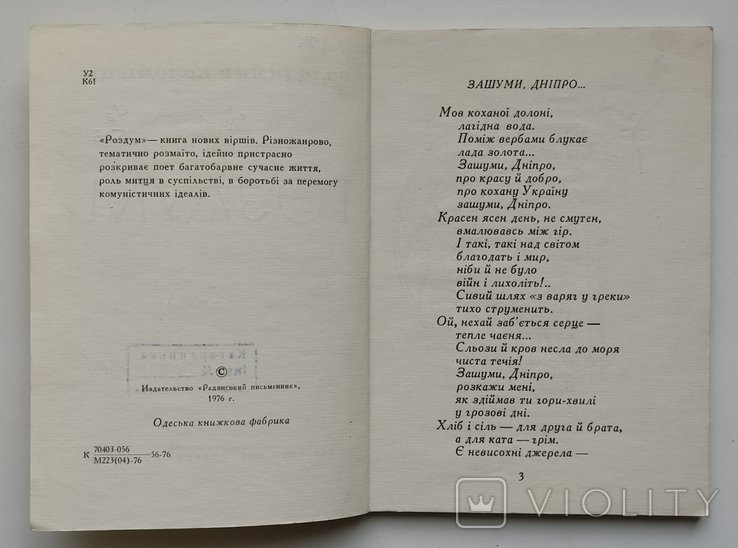 У2
К61
«Роздум»— книга нових віршів. Різножанрово,
тематично розмаїто, ідейно пристрасно
розкриває поет багатобарвне сучасне життя,
роль митця в суспільстві, в боротьбі за перемогу
комуністичних ідеалів.
©
Издательство «Радянський письменник»,
1976 г.
Одеська книжкова фабрика
К 70403-056
М223(04)-76
56-76
ЗАШУМИ, ДНІПРО...
Мов коханої долоні,
лагідна вода.
Поміж вербами блукає
лада золота...
Зашуми, Дніпро,
про красу й добро,
про кохану Україну
зашуми, Дніпро.
Красен ясен день, не смутен,
вмалювавсь між гір.
І такі, такі над світом
благодать і мир,
ніби й не було
війн і лихоліть!..
Сивий шлях «з варяг у греки»
тихо струменить.
Ой, нехай заб'ється серце —
тепле чаєня...
Сльози й кров несла до моря
чиста течія!
Зашуми, Дніпро,
розкажи мені,
як здіймав ти гори-хвилі
у грозові дні.
Хліб і сіль — для друга й брата,
а для ката — грім.
Є невисохні джерела —
3
VIOLITY